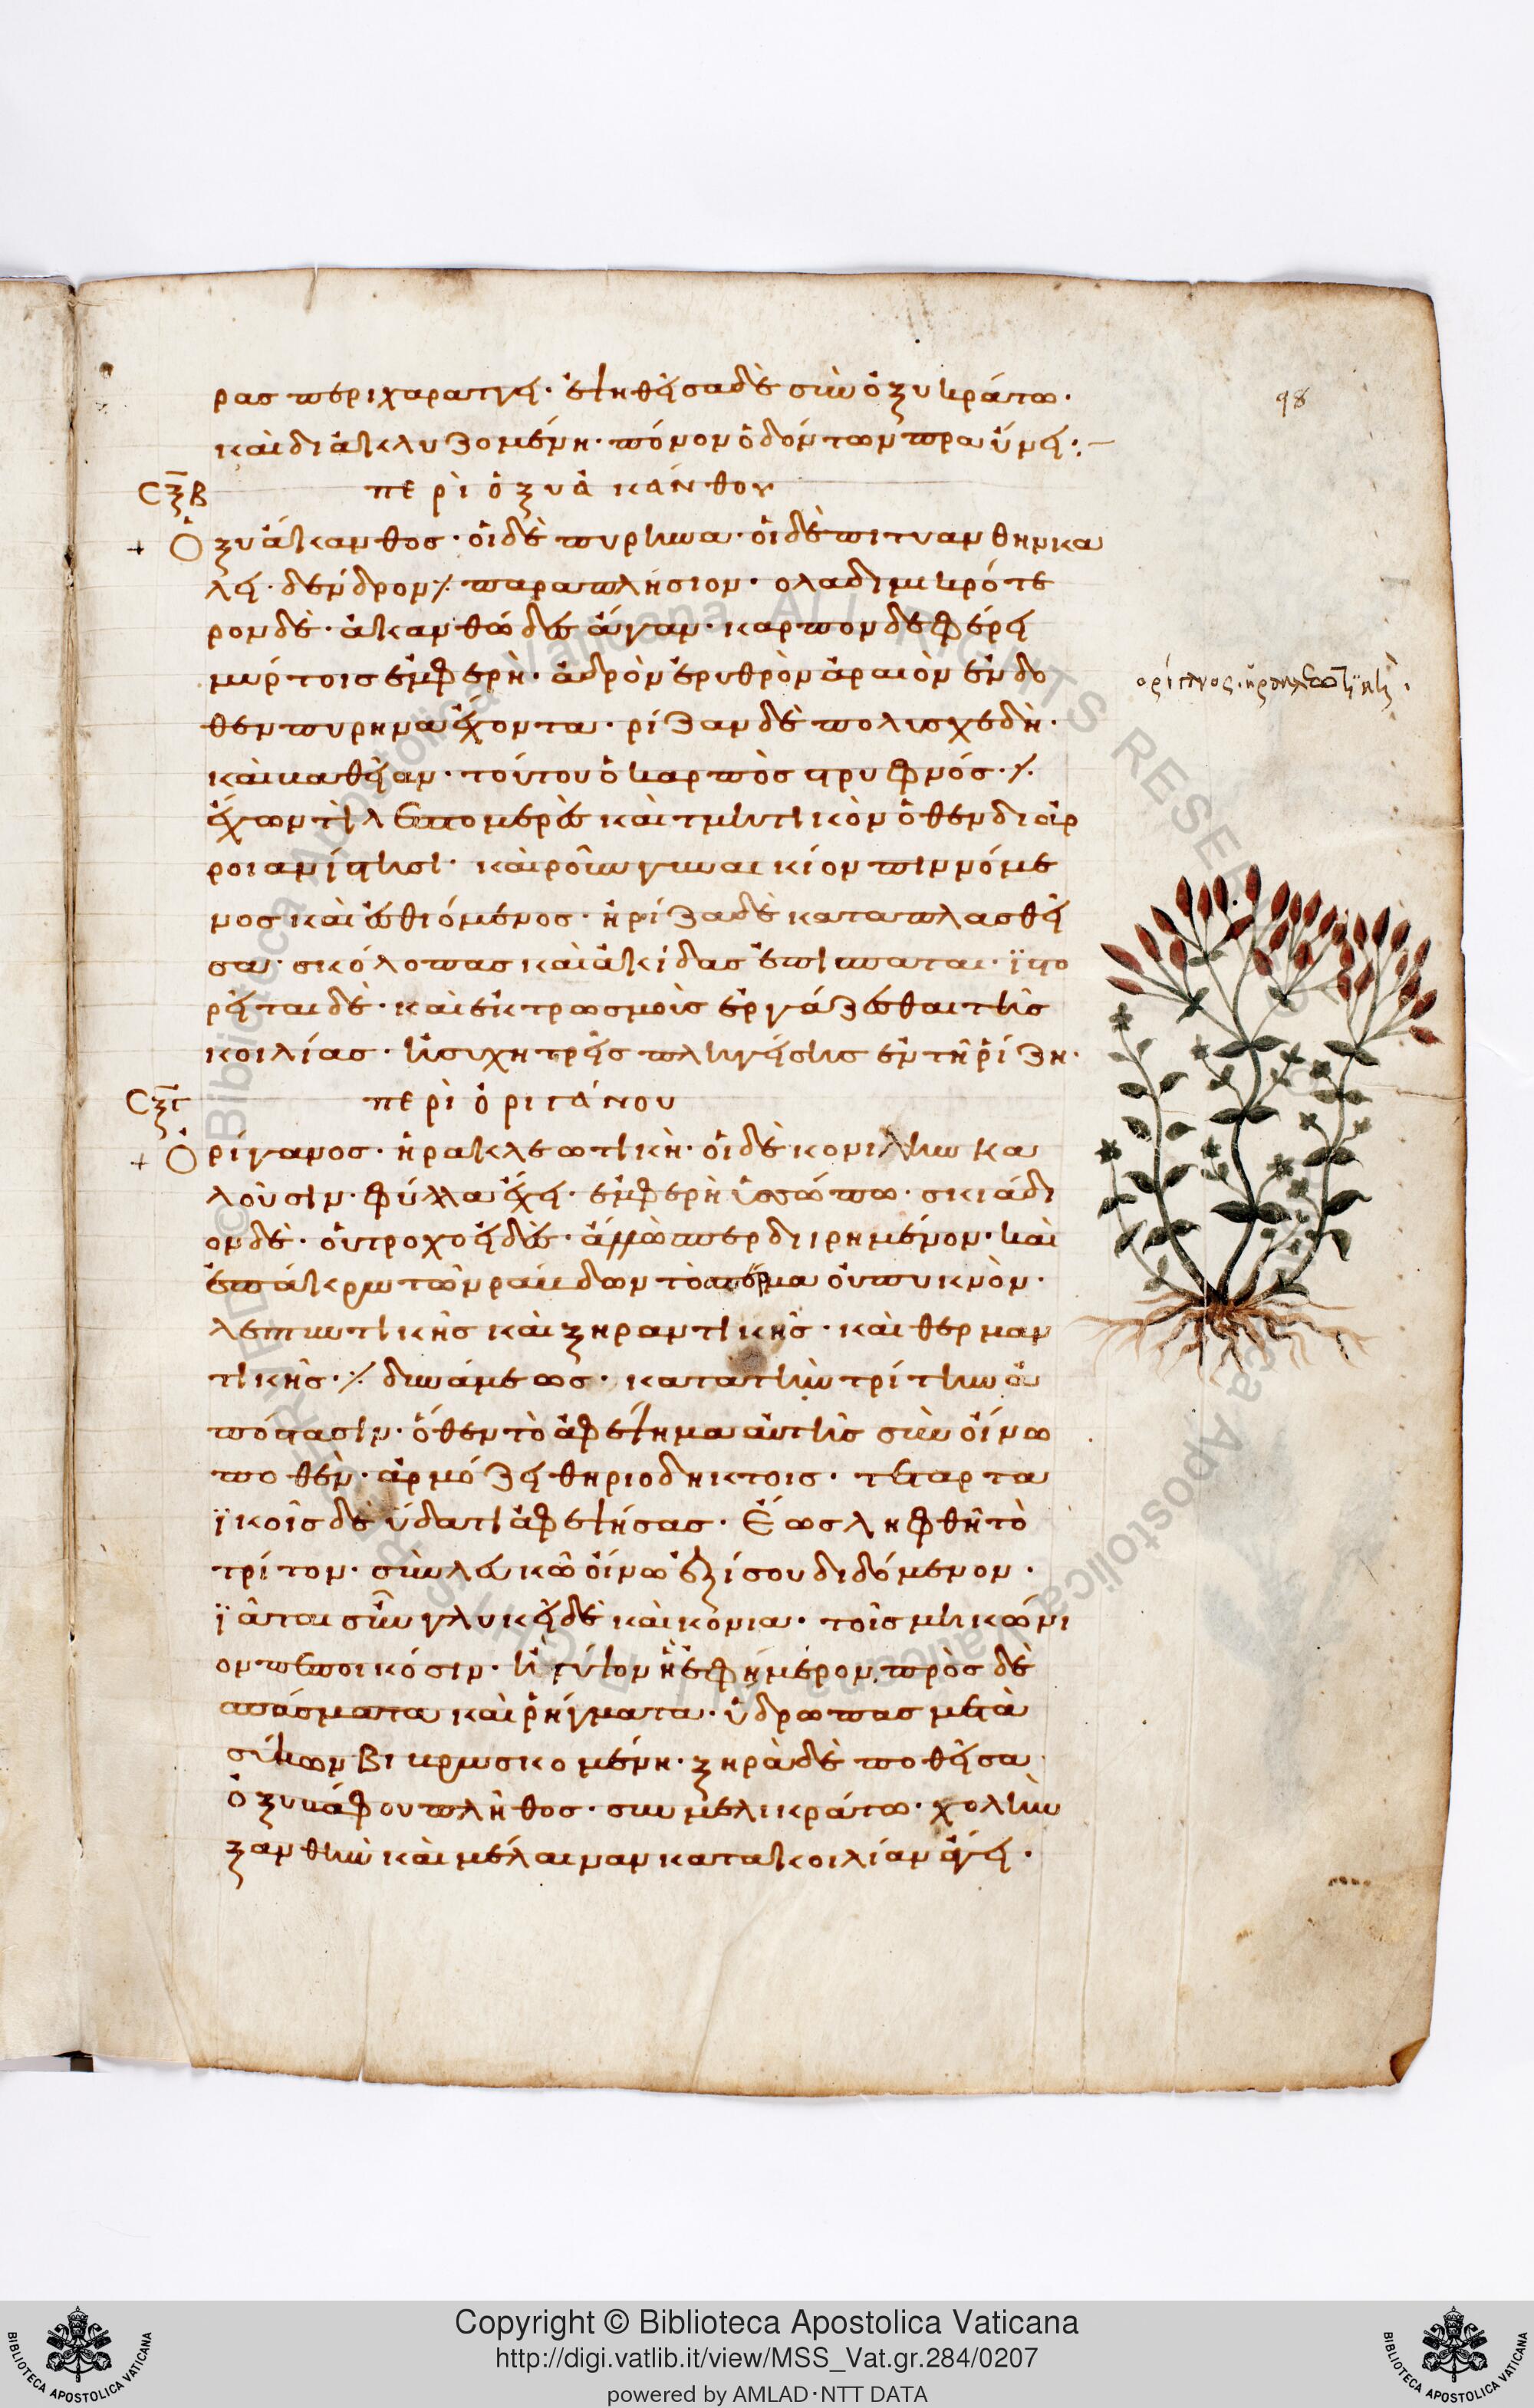 ρας περιχαράττει· ἑψηθεῖσα δὲ σὺν ὀξυκράτω·
καὶ διακλυζομένη· πόνον ὀδόντων πραΰνει:—
ϹξΒ περὶ ὀξυακάνθου
+ Ὀξυάκανθος· οἱ δὲ πυρίνα· οἱ δὲ πιτυάνθην κα
λεῖ· δένδρον παραπλήσιον· μικρότε
ρον δὲ· ἀκανθῶδες ἄγαν· καρπὸν δὲ φέρει
μύρτοις ἐμφερῆ· ἁδρὸν ἐρυθρὸν ἀραιὸν ἔνδο
θεν πυρῆνα ἔχοντα· ρίζαν δὲ πολυσχεδῆ·
καὶ βαθεῖαν· τούτου ὁ καρπὸς στρυφνός·
ἔχων τι λεπτομερὲς καὶ τμητικὸν ὅθεν διάρ
ροιαν ἵστησι· καὶ ροῦν γυναικίον πιννόμε
νος καὶ ἐσθιόμενος· ἡ ρίζα δὲ καταπλασθεῖ
σα· σκόλοπας καὶ ἀκίδας ἐπισπᾶται· ἱστο
ρεῖται δὲ· καὶ ἐκτρωσμοὺς ἐργάζεσθαι τῆς
κοιλίας· ἡσυχῆ τρεῖς πληγείσης ἐν τῆ ρίζη·
Ϲξγ περὶ ὀριγάνου
+ Ὀρίγανος· ἡρακλεωτικὴ· οἱ δὲ κονίλην κα
λοῦσιν· φύλλα ἔχει· ἐμφερῆ ὑσσώπω· σκιάδι
ον δὲ· οὐ τροχοειδὲς· ἀλλ' ὥσπερ διῃρημένον· καὶ
ἐπ' ἄκρω τῶν ράβδων τὸ σπέρμα οὐ πυκνὸν·
λεπτυντικῆς καὶ ξηραντικῆς· καὶ θερμαν
τικῆς· δυνάμεως· κατὰ τὴν τρίτην ἀ
πόστασιν· ὅθεν τὸ ἀφέψημα αὐτῆς σὺν οἴνω
ποθὲν· ἁρμόζει θηριοδήκτοις· τεταρτα
ϊκοῖς δὲ ὕδατι ἀφεψήσας· ἕως ληφθῆ τὸ
τρίτον· σὺν λευκῶ οἴνω ἐξ ἴσου διδόμενον·
ϊᾶται σὺν γλυκεῖ δὲ καὶ κονία· τοῖς μηκώνι
ον πεποικόσιν· ἢ γύψον ἢ ἐφήμερον, πρὸς δὲ
σπάσματα καὶ ρήγματα· ὑδρωπας μετὰ
σύκων βιβρωσκομένη· ξηρὰ δὲ ποθεῖσα
ὀξυβάφου πλῆθος· σὺν μελικράτω· χολὴν
ξανθὴν καὶ μέλαιναν κατὰ κοιλίαν ἄγει·
98
Copyright © Biblioteca Apostolica Vaticana
http://digi.vatlib.it/view/MSS_Vat.gr.284/0207
powered by AMLAD·NTT DATA
BIBLIOTECA APOSTOLICA VATICANA
BIBLIOTECA APOSTOLICA VATICANA